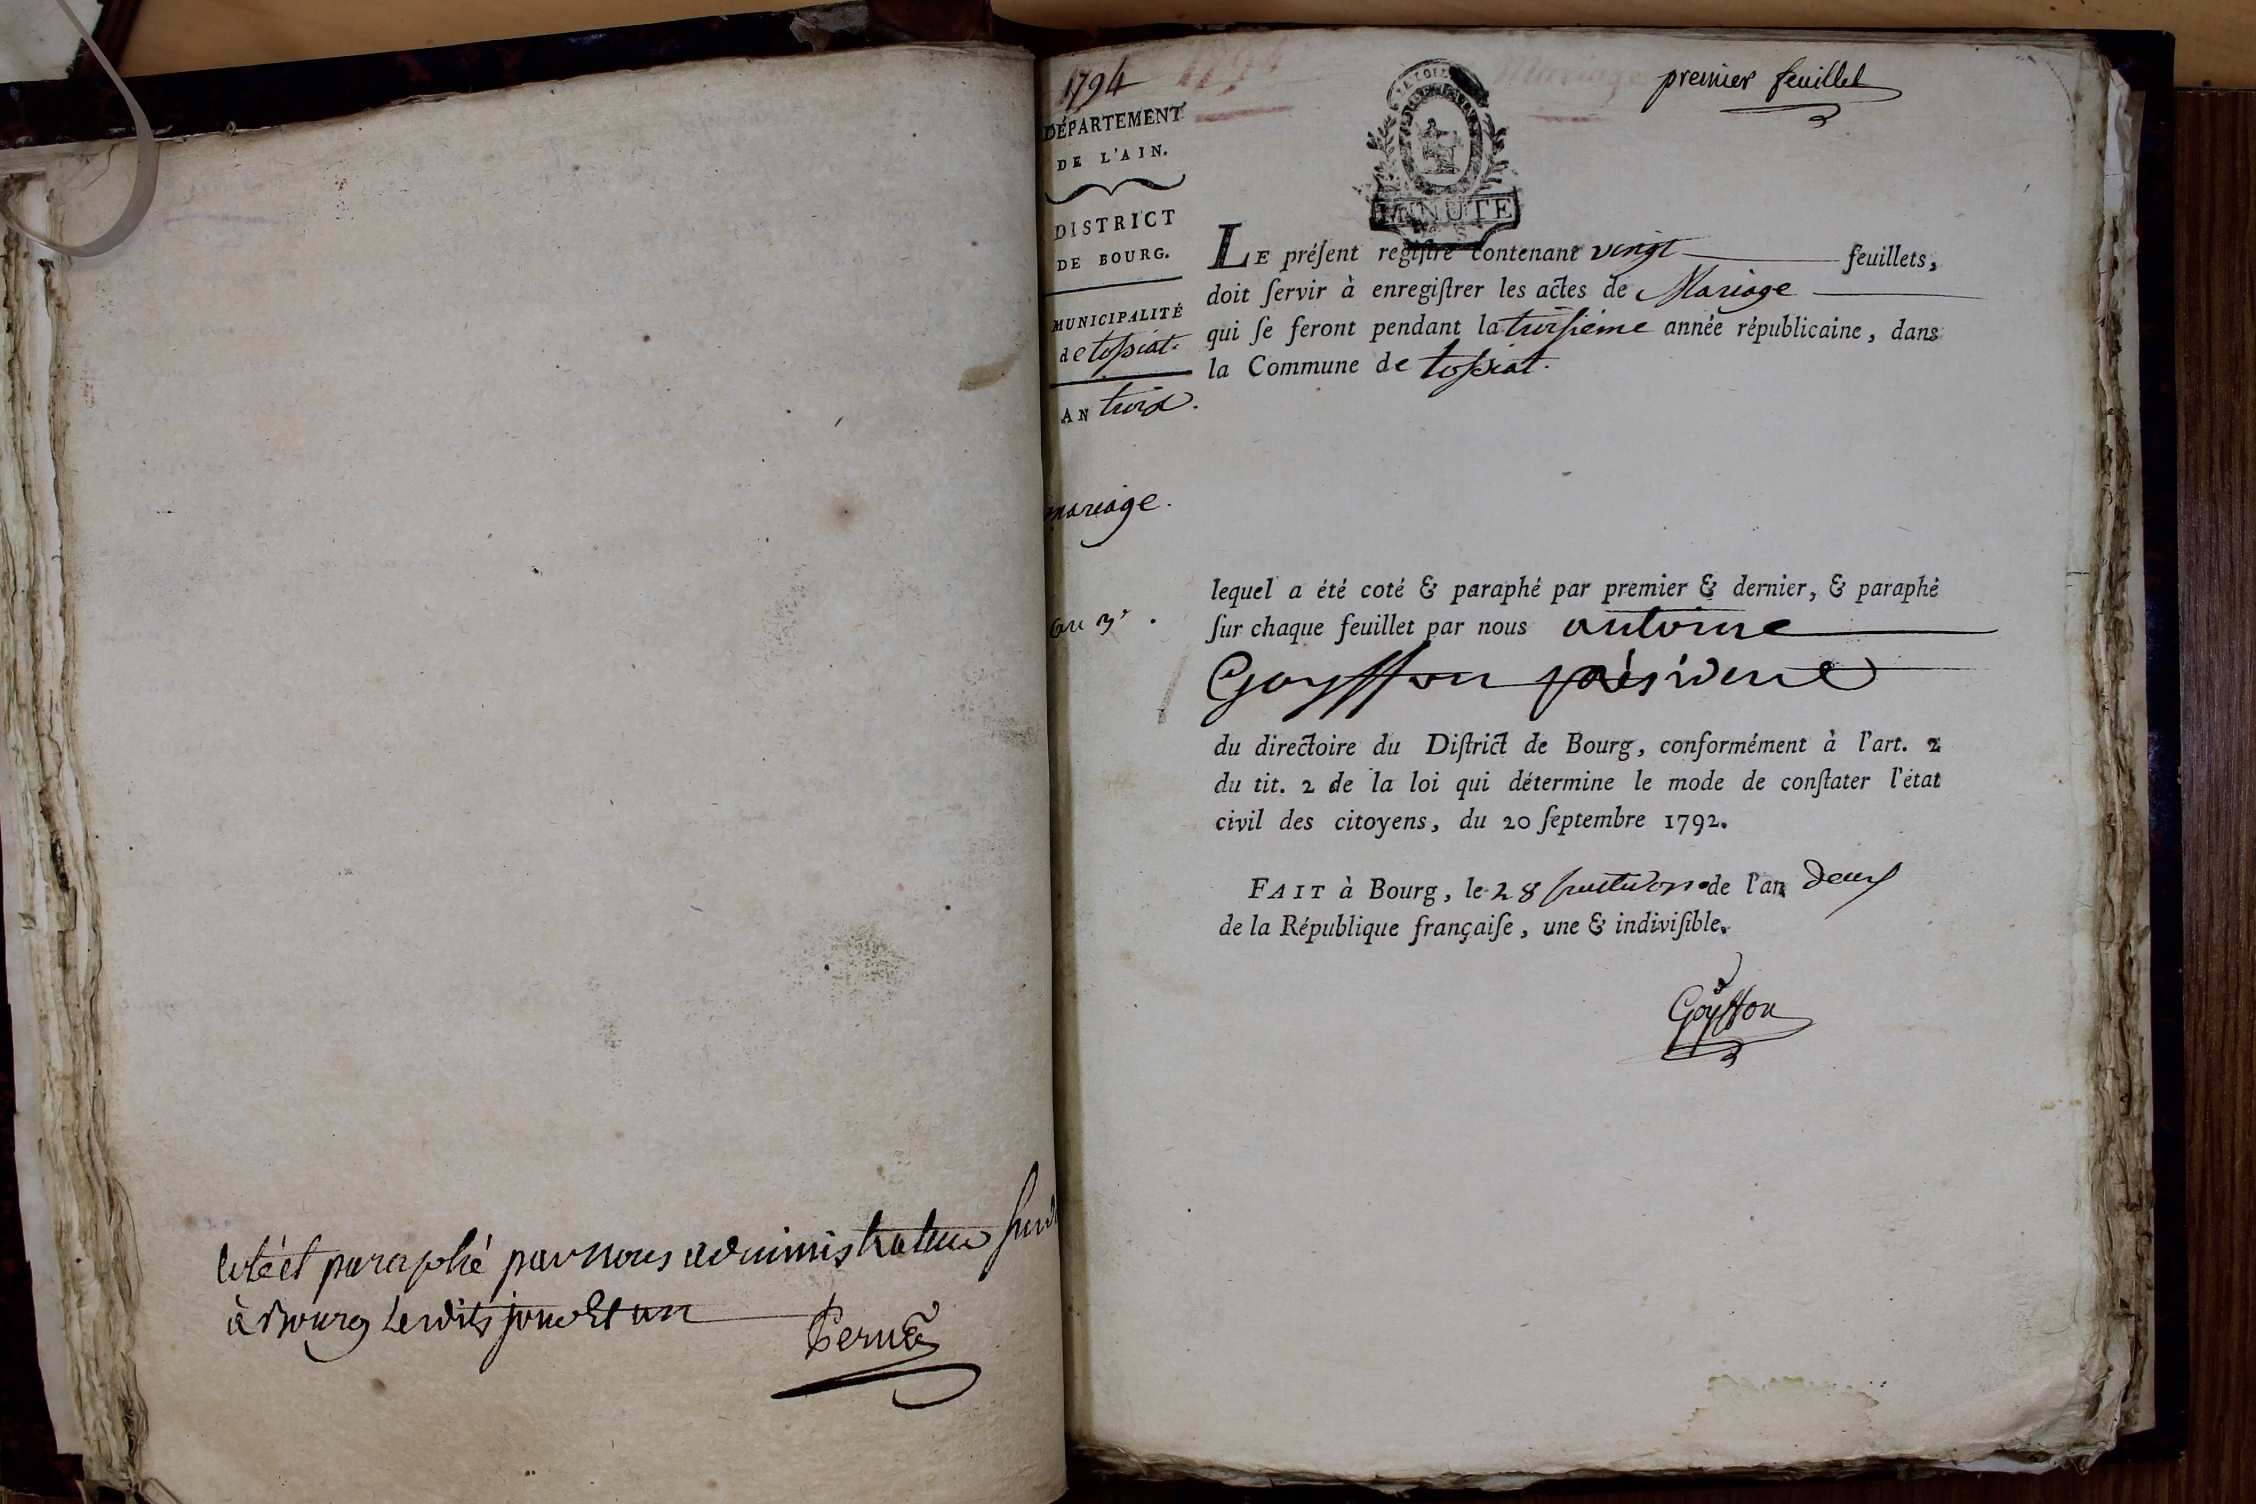 coté et paraphé par nous administrateur
à Bourg lesdits jour et an
1794
1794
Mariage
premier feuillet
DÉPARTEMENT
DE L'AIN.
DISTRICT
DE BOURG.
MUNICIPALITÉ
de tossiat.
AN trois.
mariage.
an 3e.
LA LOI
MINUTE
LE préſent regiſtre contenant vingt feuillets,
doit ſervir à enregiſtrer les actes de Mariage
qui ſe feront pendant la troisiéme année républicaine, dans
la Commune de tossiat.
lequel a été coté & paraphé par premier & dernier, & paraphé
ſur chaque feuillet par nous antoine
Goyffon président
du directoire du Diſtrict de Bourg, conformément à l'art. 2
du tit. 2 de la loi qui détermine le mode de conſtater l'état
civil des citoyens, du 20 ſeptembre 1792.
FAIT à Bourg, le 28 fructidor de l'an deux
de la République françaiſe, une & indiviſible.
Goyffon